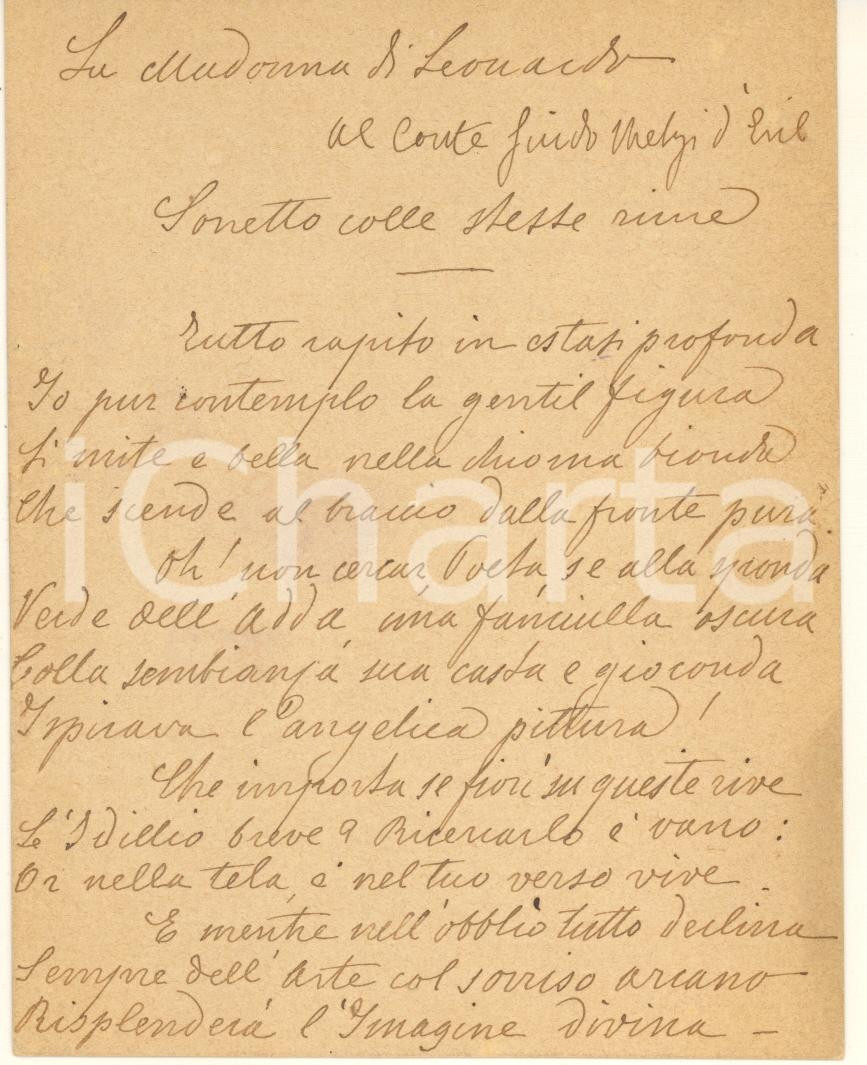 La Madonna di Leonardo
al Conte Guido Melzi d'Eril
Sonetto colle stesse rime
Tutto rapito in estasi profonda
Io pur contemplo la gentil figura
Sì mite e bella nella chioma bionda
Che scende al braccio dalla fronte pura.
Oh! non cercar Poeta, se alla sponda
Verde dell'Adda una fanciulla oscura
Colla sembianza sua casta e gioconda
Ispirava l'angelica pittura!
Che importa se fiorì su queste rive
L'Idillio breve? Ricercarlo è vano:
Or nella tela, e nel tuo verso vive.
E mentre nell'obblio tutto declina
Sempre dell'Arte col sorriso arcano
Risplenderà l'Imagine divina -
iCharta